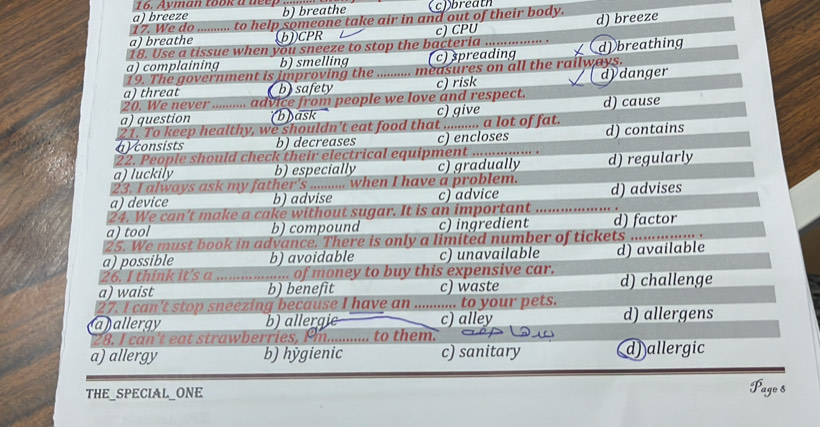 16. Ayman took a deep ..........
a) breeze b) breathe c) breath
17. We do .......... to help someone take air in and out of their body.
a) breathe b) CPR c) CPU d) breeze
18. Use a tissue when you sneeze to stop the bacteria ................ .
a) complaining b) smelling c) spreading d) breathing
19. The government is improving the .......... measures on all the railways.
a) threat b) safety c) risk d) danger
20. We never .......... advice from people we love and respect.
a) question b) ask c) give d) cause
21. To keep healthy, we shouldn't eat food that .......... a lot of fat.
a) consists b) decreases c) encloses d) contains
22. People should check their electrical equipment ............... .
a) luckily b) especially c) gradually d) regularly
23. I always ask my father's .......... when I have a problem.
a) device b) advise c) advice d) advises
24. We can't make a cake without sugar. It is an important .................. .
a) tool b) compound c) ingredient d) factor
25. We must book in advance. There is only a limited number of tickets ............... .
a) possible b) avoidable c) unavailable d) available
26. I think it's a .................. of money to buy this expensive car.
a) waist b) benefit c) waste d) challenge
27. I can't stop sneezing because I have an ........... to your pets.
a) allergy b) allergic c) alley d) allergens
28. I can't eat strawberries, I'm............ to them.
a) allergy b) hygienic c) sanitary d) allergic
THE_SPECIAL_ONE Page 8